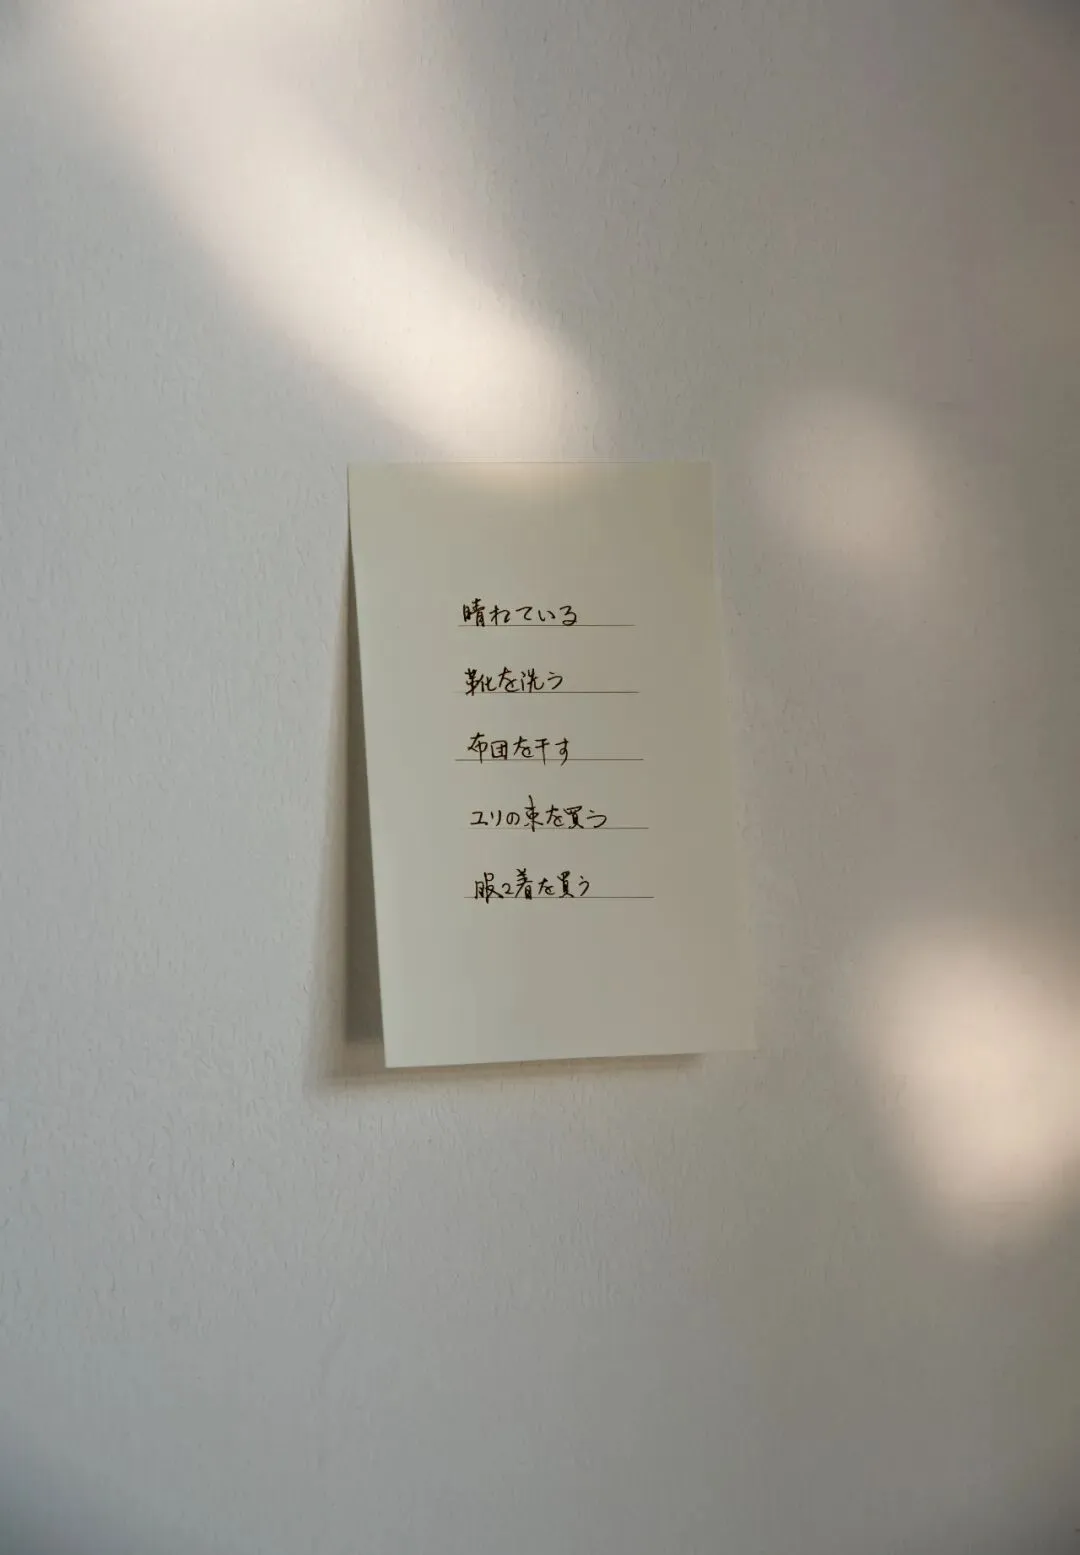 晴れている
靴を洗う
布団を干す
ユリの束を買う
服2着を買う